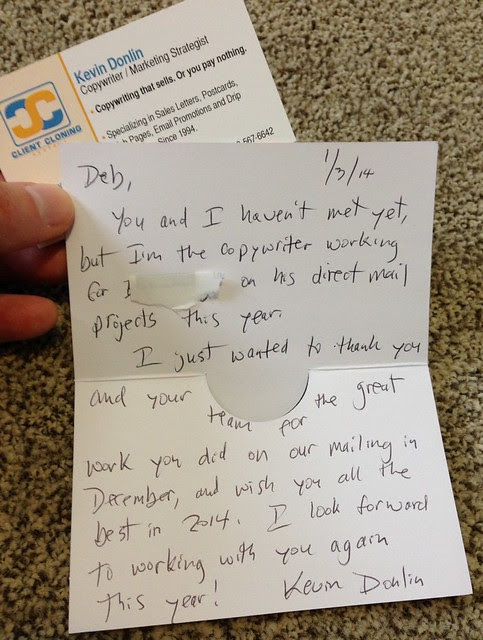 Kevin Donlin
Copywriter / Marketing Strategist
• Copywriting that sells. Or you pay nothing.
• Specializing in Sales Letters, Postcards,
Pages, Email Promotions and Drip
Since 1994.
567-6642
CLIENT CLONING
1/3/14
Deb,
You and I haven't met yet,
but I'm the copywriter working
for on his direct mail
projects this year.
I just wanted to thank you
and your team for the great
work you did on our mailing in
December, and wish you all the
best in 2014. I look forward
to working with you again
this year! Kevin Donlin